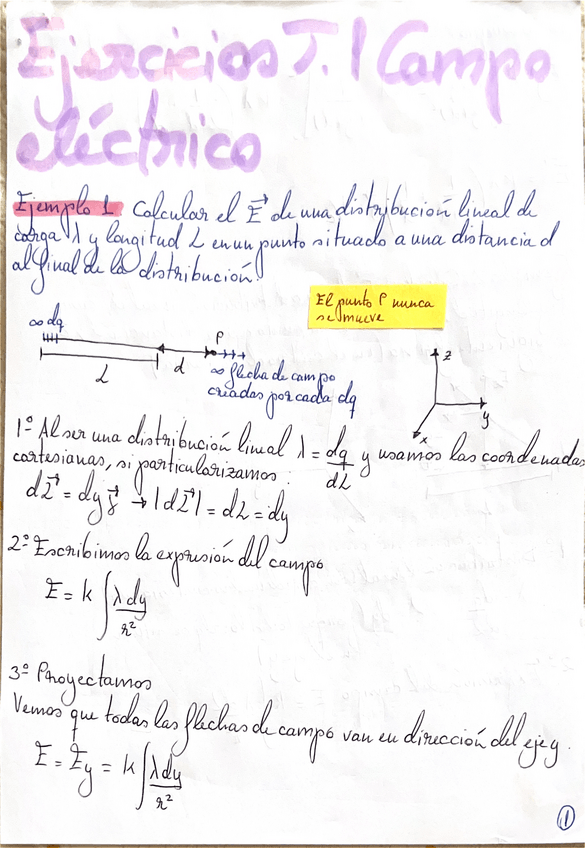 Ejercicios T.1 Campo
eléctrico
Ejemplo 1 Calcular el E⃗ de una distribución lineal de
carga λ y longitud L en un punto situado a una distancia d
al final de la distribución.
El punto P nunca
se mueve
∞ dq
P
L
d
∞ flecha de campo
creadas por cada dq
z
y
x
1º Al ser una distribución lineal λ = dq/dL y usamos las coordenadas
cartesianas, si particularizamos:
dL⃗ = dy j⃗ → |dL⃗| = dL = dy
2º Escribimos la expresión del campo
E = k ∫ λdy/r²
3º Proyectamos
Vemos que todas las flechas de campo van en dirección del eje y.
E = Ey = k ∫ λdy/r²
1